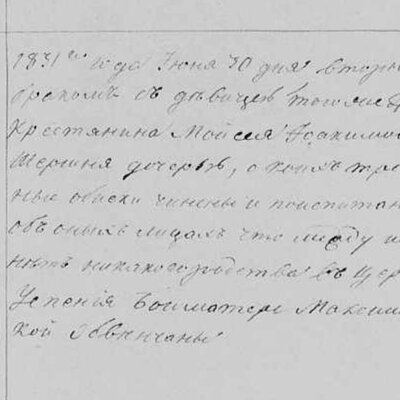 1831го года Июня 30 дня вторы
бракомъ съ дѣвицею тогоже
Крестянина Мойсея Іоакимо
дочерью, о коихъ тро
ные обыски чинены и по испытан
объ оныхъ лицахъ что между и
нѣтъ никакого родства въ цер
Успенія Божіматере Максим
кой обвѣнчаны